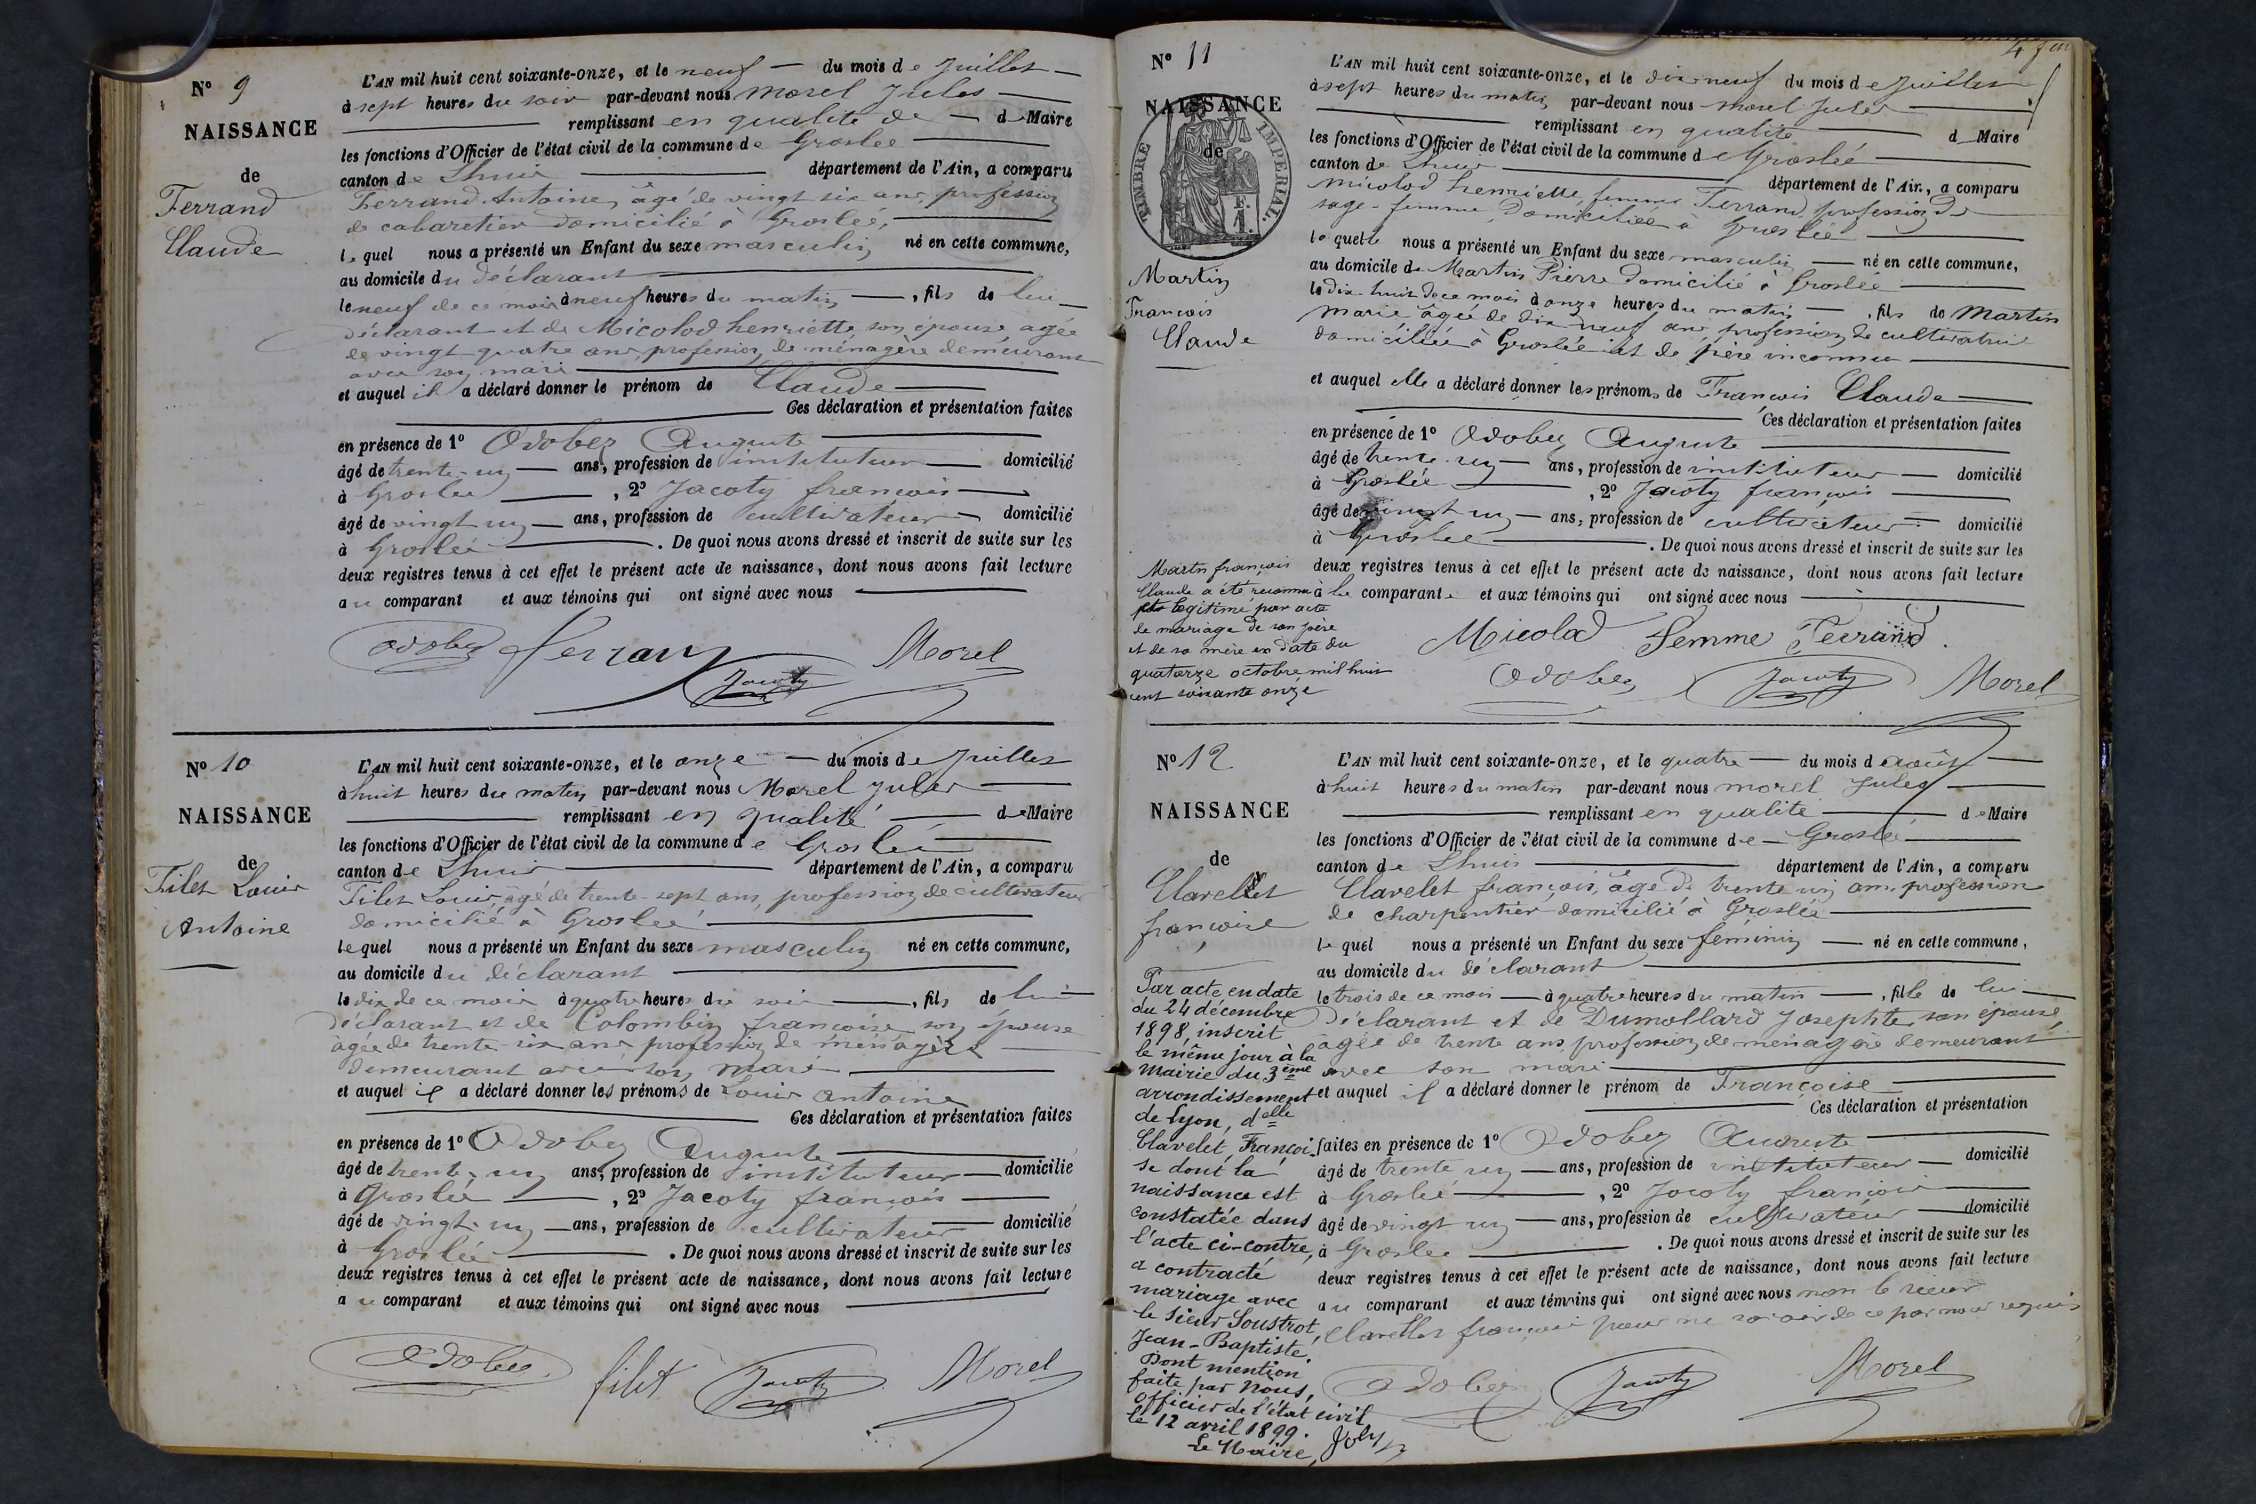 N° 9
NAISSANCE
de
Ferrand
Claude
L'AN mil huit cent soixante-onze, et le neuf du mois de Juillet
à sept heures du soir par-devant nous Morel Jules
remplissant en qualité de d Maire
les fonctions d'Officier de l'état civil de la commune de Groslée
canton de Lhuis département de l'Ain, a comparu
Ferrand Antoine, âgé de vingt six ans, profession
de cabaretier domicilié à Groslée,
lequel nous a présenté un Enfant du sexe masculin né en cette commune,
au domicile du déclarant
le neuf de ce mois à neuf heures du matin, fils de lui
déclarant et de Micolod henriette son épouse agée
de vingt quatre ans, profession de ménagère demeurant
avec son mari
et auquel il a déclaré donner le prénom de Claude
Ces déclaration et présentation faites
en présence de 1° Odobez Auguste
âgé de trente-un ans, profession de instituteur domicilié
à Groslée, 2° Jacoty françois
âgé de vingt un ans, profession de cultivateur domicilié
à Groslée. De quoi nous avons dressé et inscrit de suite sur les
deux registres tenus à cet effet le présent acte de naissance, dont nous avons fait lecture
au comparant et aux témoins qui ont signé avec nous
Odobez ferran Jacoty Morel
N° 10
NAISSANCE
de
Filet Louis
Antoine
L'AN mil huit cent soixante-onze, et le onze du mois de Juillet
à huit heures du matin par-devant nous Morel Jules
remplissant en qualité de Maire
les fonctions d'Officier de l'état civil de la commune de Groslée
canton de Lhuis département de l'Ain, a comparu
Filet Louis, âgé de trente-sept ans, profession de cultivateur
domicilié à Groslée
lequel nous a présenté un Enfant du sexe masculin né en cette commune,
au domicile du déclarant
le dix de ce mois à quatre heures du soir, fils de lui
déclarant et de Colombin françoise son épouse
agée de trente-six ans profession de ménagère
demeurant avec son mari
et auquel il a déclaré donner les prénoms de Louis Antoine
Ces déclaration et présentation faites
en présence de 1° Odobez Auguste
âgé de trente-un ans, profession de instituteur domicilié
à Groslée, 2° Jacoty françois
âgé de vingt-un ans, profession de cultivateur domicilié
à Groslée. De quoi nous avons dressé et inscrit de suite sur les
deux registres tenus à cet effet le présent acte de naissance, dont nous avons fait lecture
au comparant et aux témoins qui ont signé avec nous
Odobez filet Jacoty Morel
N° 11
NAISSANCE
de
TIMBRE IMPERIAL.
F.
1.
Martin
François
Claude
L'AN mil huit cent soixante-onze, et le dix-neuf du mois de Juillet
à sept heures du matin par-devant nous Morel Jules
remplissant en qualité d Maire
les fonctions d'Officier de l'état civil de la commune de Groslée
canton de Lhuis département de l'Ain, a comparu
Micolod henriette, femme Ferrand, profession de
sage-femme, domiciliée à Groslée
laquelle nous a présenté un Enfant du sexe masculin né en cette commune,
au domicile de Martin Pierre domicilié à Groslée
le dix-huit de ce mois à onze heures du matin, fils de Martin
Marie âgée de dix-neuf ans profession de cultivatrice
domiciliée à Groslée et de père inconnu
et auquel elle a déclaré donner les prénoms de François Claude
Ces déclaration et présentation faites
en présence de 1° Odobez Auguste
âgé de trente-un ans, profession de instituteur domicilié
à Groslée, 2° Jacoty françois
âgé de vingt un ans, profession de cultivateur domicilié
à Groslée. De quoi nous avons dressé et inscrit de suite sur les
deux registres tenus à cet effet le présent acte de naissance, dont nous avons fait lecture
à la comparante et aux témoins qui ont signé avec nous
Martin françois
Claude a été reconnu
légitime par acte
de mariage de son père
et de sa mère en date du
quatorze octobre mil huit
cent soixante onze
Micolod femme Ferrand
Odobez Jacoty Morel
N° 12
NAISSANCE
de
Clavelet
françoise
L'AN mil huit cent soixante-onze, et le quatre du mois d août
à huit heures du matin par-devant nous Morel Jules
remplissant en qualité de Maire
les fonctions d'Officier de l'état civil de la commune de Groslée
canton de Lhuis département de l'Ain, a comparu
Clavelet françois, âgé de trente un ans profession
de charpentier domicilié à Groslée
lequel nous a présenté un Enfant du sexe féminin né en cette commune,
au domicile du déclarant
le trois de ce mois à quatre heures du matin, fille de lui
déclarant et de Dumollard Josephte son épouse,
agée de trente ans profession de ménagère demeurant
avec son mari
et auquel il a déclaré donner le prénom de Françoise
Ces déclaration et présentation
faites en présence de 1° Odobez Auguste
âgé de trente un ans, profession de instituteur domicilié
à Groslée, 2° Jacoty françois
âgé de vingt un ans, profession de cultivateur domicilié
à Groslée. De quoi nous avons dressé et inscrit de suite sur les
deux registres tenus à cet effet le présent acte de naissance, dont nous avons fait lecture
au comparant et aux témoins qui ont signé avec nous non le sieur
Clavellet françois pour ne savoir de ce par nous requis
Par acte en date
du 24 décembre
1898, inscrit
le même jour à la
Mairie du 3ème
arrondissement
de Lyon, delle
Clavelet, Françoi-
se dont la
naissance est
constatée dans
l'acte ci-contre,
a contracté
mariage avec
le Sieur Soustrot,
Jean-Baptiste.
Dont mention
faite par Nous,
Officier de l'état civil
le 12 avril 1899.
Le Maire, Joly
Odobez Jacoty Morel